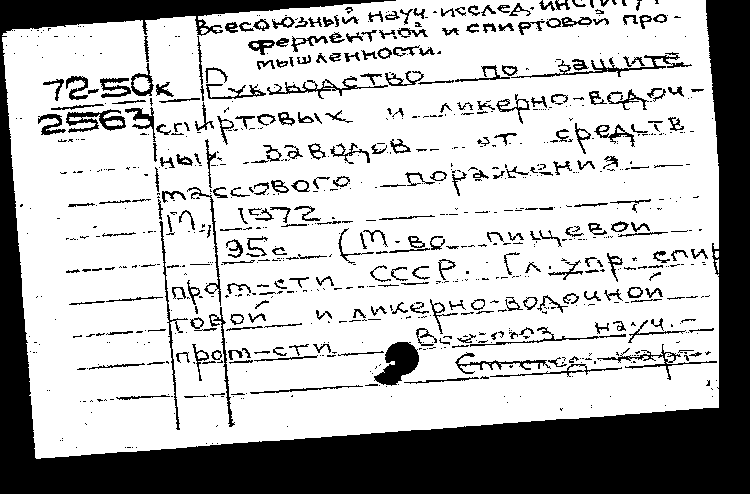 Всесоюзный науч.-исслед. институт
ферментной и спиртовой про-
мышленности.
72-50к Руководство по защите
2563 спиртовых и ликерно-водоч-
ных заводов от средств
массового поражения.
М., 1972.
95с. (М-во пищевой
пром-сти СССР. Гл. упр. спир
товой и ликерно-водочной
пром-сти Всесоюз. науч.-
См. след. карт.